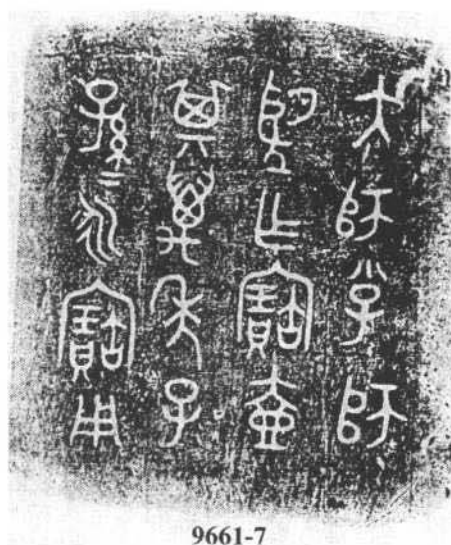 大師小子師
望乍寶壺
其萬年子
孫=永寶用
9661-7